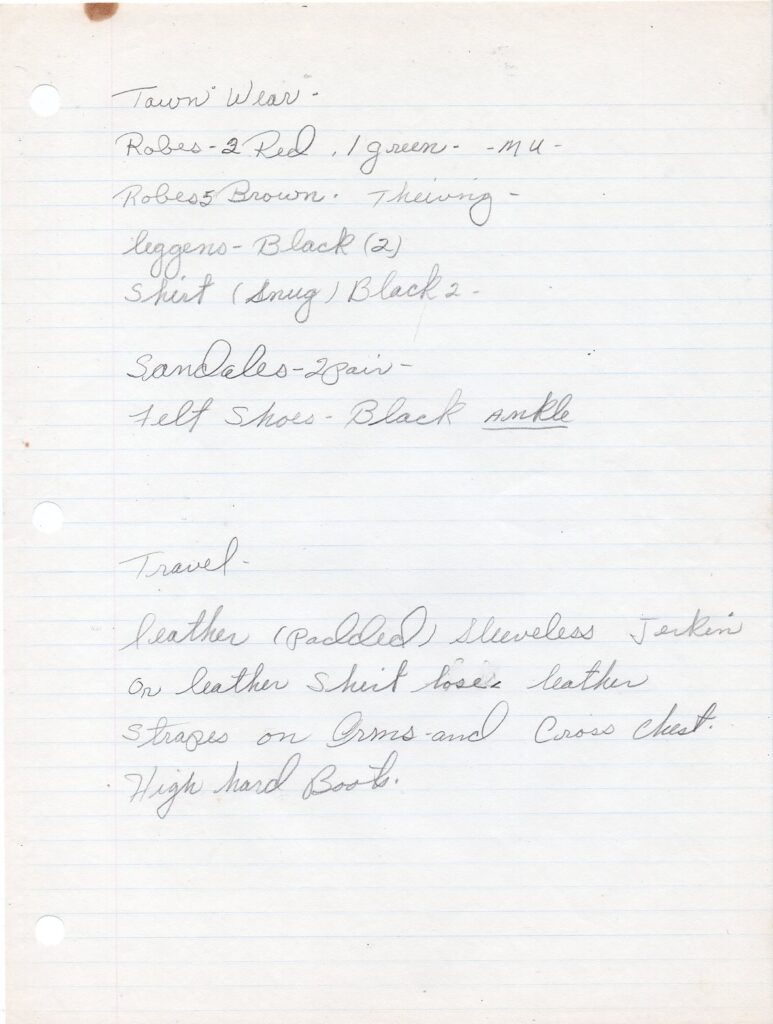 Town Wear -
Robes - 2 Red , 1 green - - MU -
Robes 5 Brown . Theivng -
leggens - Black (2)
Shirt (Snug) Black 2 -
Sandales - 2 pair -
Felt Shoes - Black Ankle
Travel -
leather (Padded) Sleeveless Jerkin
or leather Shirt lose. leather
Strapes on Arms - and Cross Chest.
High hard Boots.